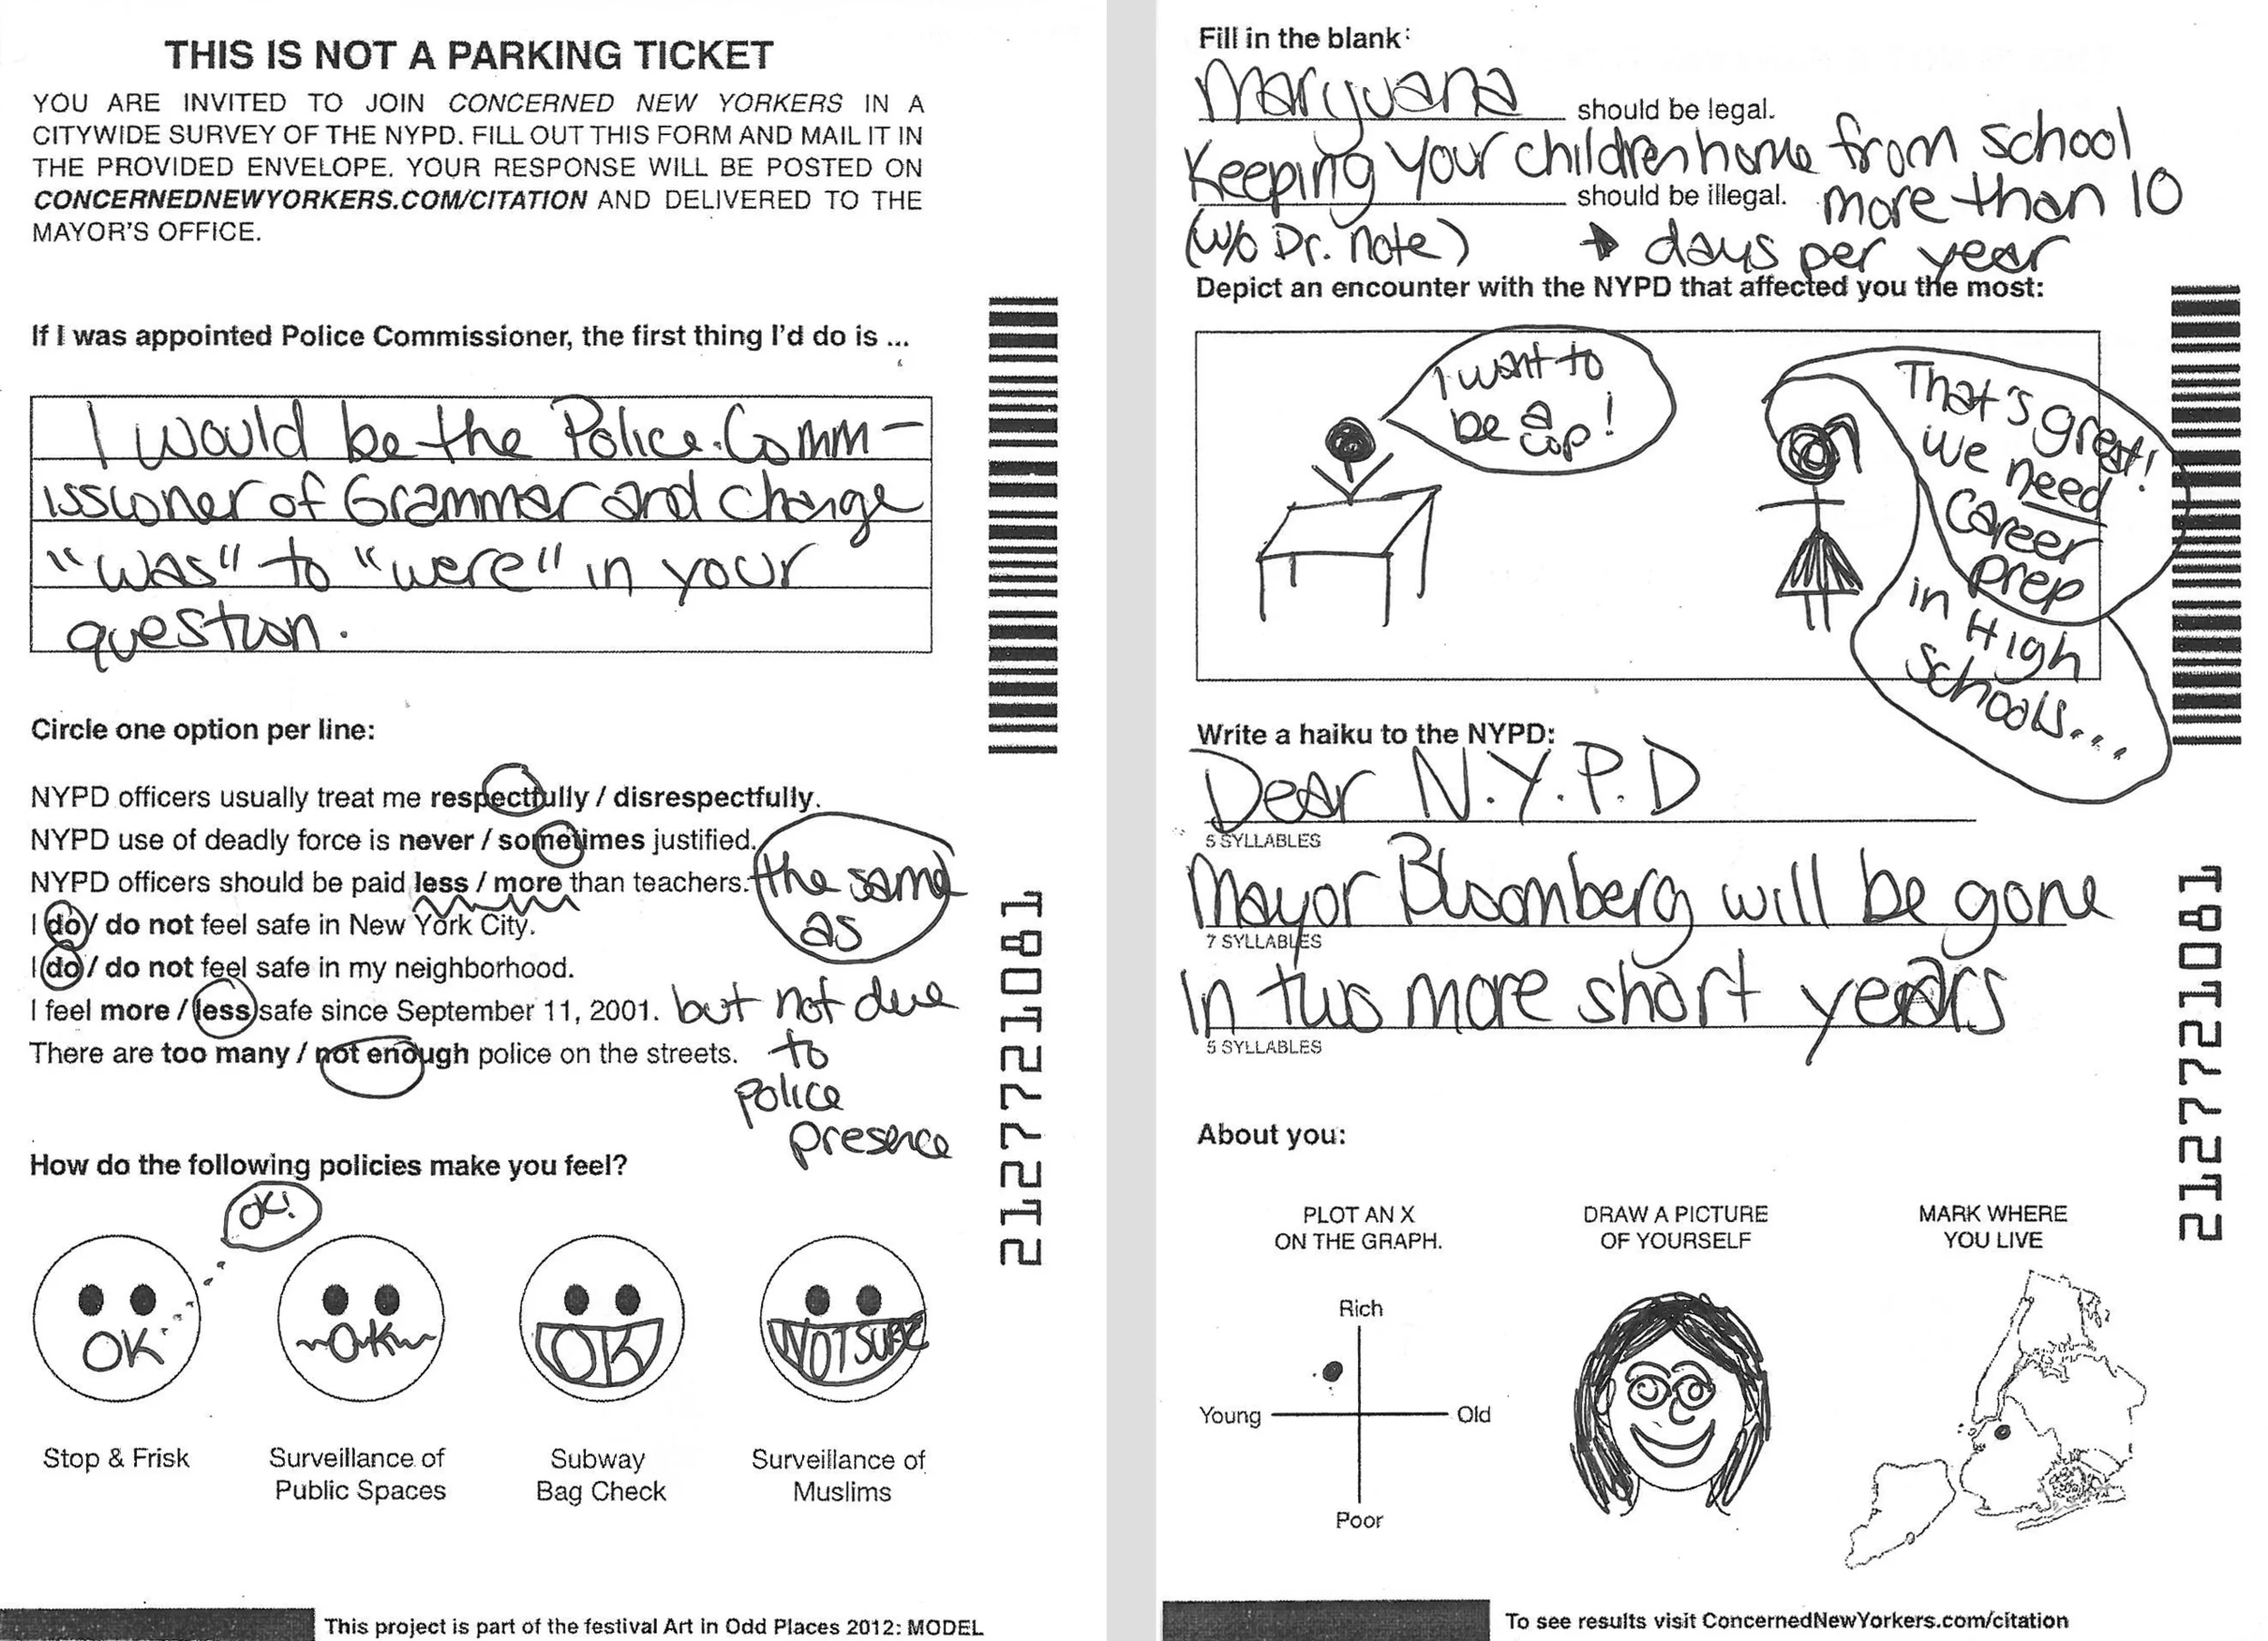 THIS IS NOT A PARKING TICKET
YOU ARE INVITED TO JOIN CONCERNED NEW YORKERS IN A
CITYWIDE SURVEY OF THE NYPD. FILL OUT THIS FORM AND MAIL IT IN
THE PROVIDED ENVELOPE. YOUR RESPONSE WILL BE POSTED ON
CONCERNEDNEWYORKERS.COM/CITATION AND DELIVERED TO THE
MAYOR'S OFFICE.
If I was appointed Police Commissioner, the first thing I'd do is ...
I would be the Police Comm-
issioner of Grammar and change
"was" to "were" in your
question.
Circle one option per line:
NYPD officers usually treat me respectfully / disrespectfully.
NYPD use of deadly force is never / sometimes justified.
NYPD officers should be paid less / more than teachers. the same
as
I do / do not feel safe in New York City.
I do / do not feel safe in my neighborhood.
I feel more / less safe since September 11, 2001. but not due
There are too many / not enough police on the streets. to
police
presence
How do the following policies make you feel?
OK!
OK
OK
OK
NOT SURE
Stop & Frisk
Surveillance of
Public Spaces
Subway
Bag Check
Surveillance of
Muslims
2127721081
This project is part of the festival Art in Odd Places 2012: MODEL
Fill in the blank:
Maryjuana should be legal.
Keeping your children home from school
should be illegal. more than 10
(w/o Dr. note) days per year
Depict an encounter with the NYPD that affected you the most:
I want to
be a
cop!
That's great!
We need
Career
prep
in High
Schools...
Write a haiku to the NYPD:
Dear N.Y.P.D
5 SYLLABLES
Mayor Bloomberg will be gone
7 SYLLABLES
In two more short years
5 SYLLABLES
About you:
PLOT AN X
ON THE GRAPH.
Rich
Young
Old
Poor
DRAW A PICTURE
OF YOURSELF
MARK WHERE
YOU LIVE
2127721081
To see results visit ConcernedNewYorkers.com/citation